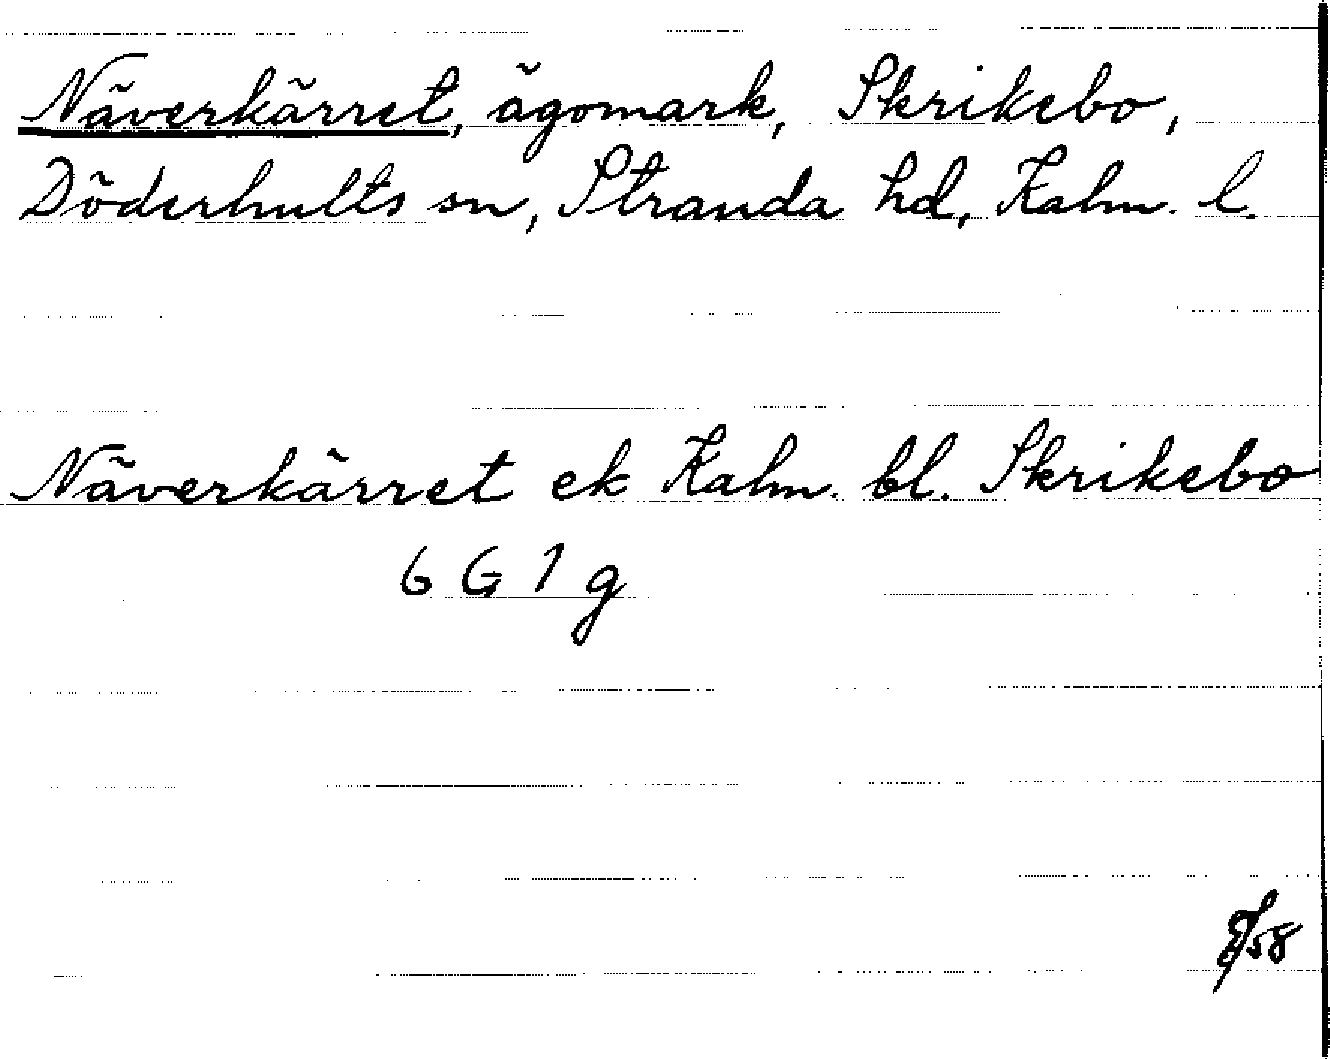 Näverkärret, ägomark, Skrikebo,
Döderhults sn, Stranda hd, Kalm. l.
Näverkärret ek Kalm. bl. Skrikebo
6 G 1 g